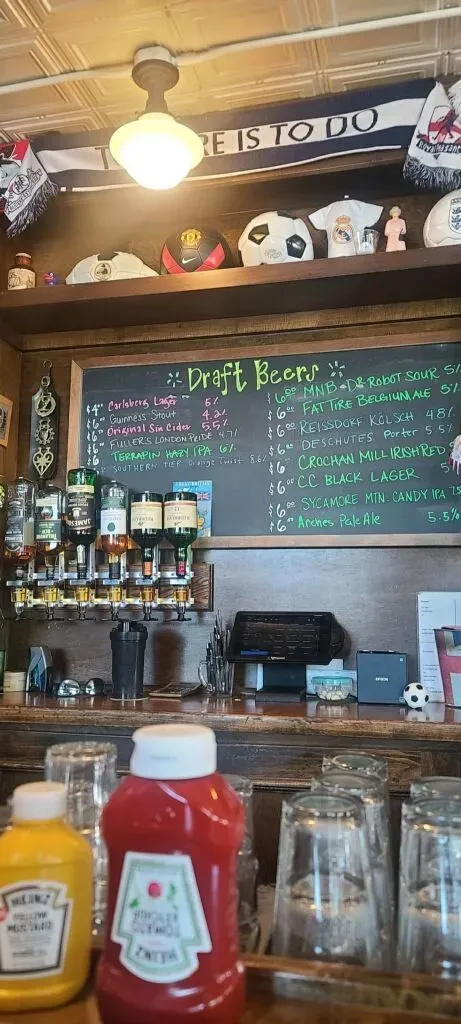 RE IS TO DO
Draft Beers
$4.00 Carlsberg Lager 5%
Guinness Stout 4.2%
Original Sin Cider 5.5%
FULLERS LONDON PRIDE 4.7%
TERRAPIN HAZY IPA 6%
SOUTHERN TIER Orange Twist 8.6%
$6.00 MNB - DR ROBOT SOUR 5%
$6.00 FAT TIRE BELGIUM ALE 5%
$6.00 REISSDORF KÖLSCH 4.8%
$6.00 DESCHUTES Porter 5.5%
$6.00 CROGHAN MILL IRISH RED 5
$6.00 CC BLACK LAGER 5
$6.00 SYCAMORE MTN. CANDY IPA 7.5
$6.00 Arches Pale Ale 5.5%
JAMESON
EPSON
HEINZ
YELLOW
MUSTARD
HEINZ
TOMATO
KETCHUP